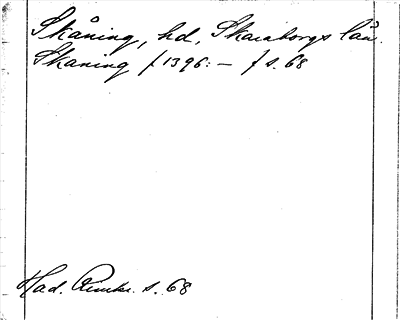 Skåning, hd, Skaraborgs län.
Skaning [1396: – ] s. 68
Had. Rimkr. s. 68